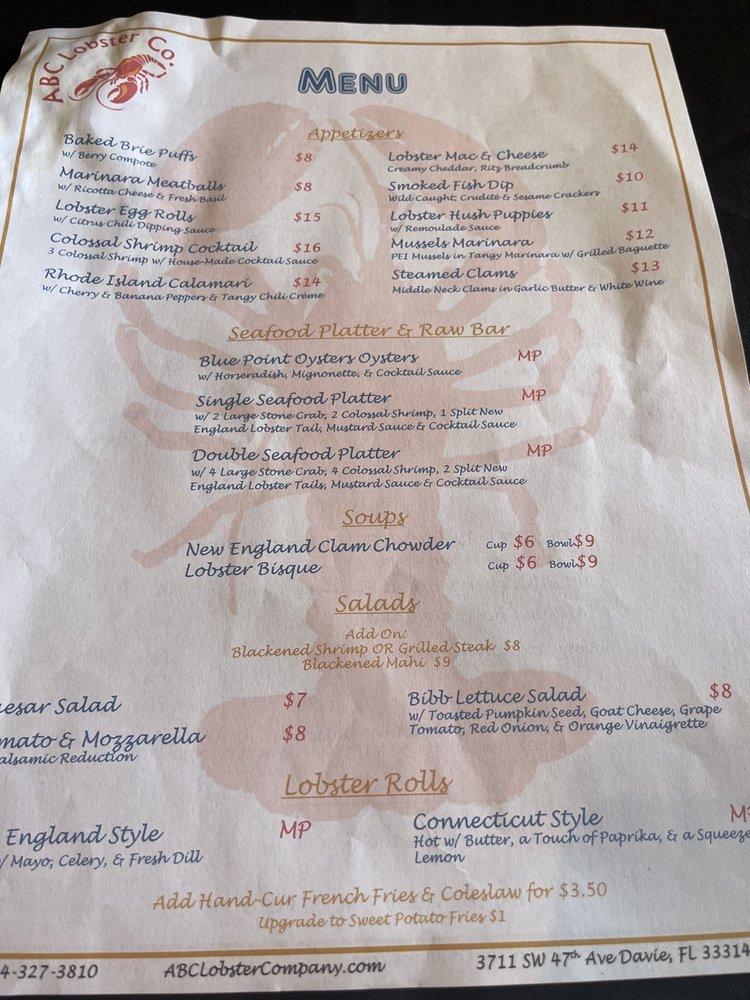 ABC Lobster Co.
MENU
Appetizers
Baked Brie Puffs $8
w/ Berry Compote
Marinara Meatballs $8
w/ Ricotta Cheese & Fresh Basil
Lobster Egg Rolls $15
w/ Citrus Chili Dipping Sauce
Colossal Shrimp Cocktail $16
3 Colossal Shrimp w/ House-Made Cocktail Sauce
Rhode Island Calamari $14
w/ Cherry & Banana Peppers & Tangy Chili Crème
Lobster Mac & Cheese $14
Creamy Cheddar, Ritz Breadcrumb
Smoked Fish Dip $10
Wild Caught; Crudité & Sesame Crackers
Lobster Hush Puppies $11
w/ Remoulade Sauce
Mussels Marinara $12
PEI Mussels in Tangy Marinara w/ Grilled Baguette
Steamed Clams $13
Middle Neck Clams in Garlic Butter & White Wine
Seafood Platter & Raw Bar
Blue Point Oysters Oysters MP
w/ Horseradish, Mignonette, & Cocktail Sauce
Single Seafood Platter MP
w/ 2 Large Stone Crab, 2 Colossal Shrimp, 1 Split New
England Lobster Tail, Mustard Sauce & Cocktail Sauce
Double Seafood Platter MP
w/ 4 Large Stone Crab, 4 Colossal Shrimp, 2 Split New
England Lobster Tails, Mustard Sauce & Cocktail Sauce
Soups
New England Clam Chowder Cup $6 Bowl $9
Lobster Bisque Cup $6 Bowl $9
Salads
Add On:
Blackened Shrimp OR Grilled Steak $8
Blackened Mahi $9
esar Salad $7
mato & Mozzarella $8
alsamic Reduction
Bibb Lettuce Salad $8
w/ Toasted Pumpkin Seed, Goat Cheese, Grape
Tomato, Red Onion, & Orange Vinaigrette
Lobster Rolls
England Style MP
/ Mayo, Celery, & Fresh Dill
Connecticut Style M
Hot w/ Butter, a Touch of Paprika, & a Squeeze
Lemon
Add Hand-Cur French Fries & Coleslaw for $3.50
Upgrade to Sweet Potato Fries $1
4-327-3810 ABCLobsterCompany.com 3711 SW 47th Ave Davie, FL 33314